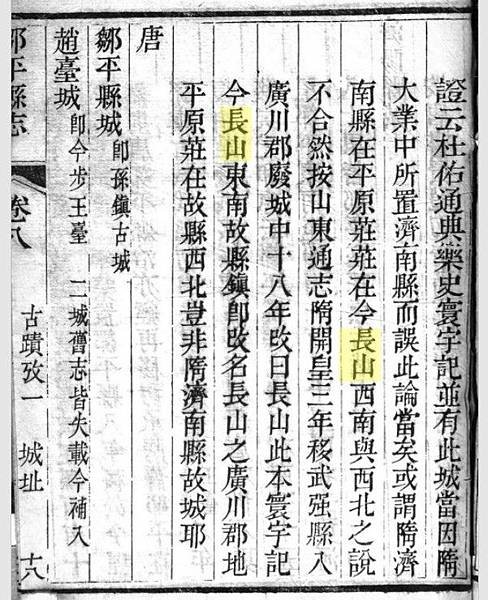 證云杜佑通典樂史寰宇記並有此城當因隋
大業中所置濟南縣而誤此論當矣或謂隋濟
南縣在平原莊莊在今長山西南與西北之說
不合然按山東通志隋開皇三年移武强縣入
廣川郡廢城中十八年改曰長山此本寰宇記
今長山東南故縣鎮卽改名長山之廣川郡地
平原莊在故縣西北豈非隋濟南縣故城耶
唐
鄒平縣城 卽孫鎮古城
趙臺城 卽今步王臺 二城舊志皆失載今補入
鄒平縣志 卷八 古蹟攷一 城址 十八